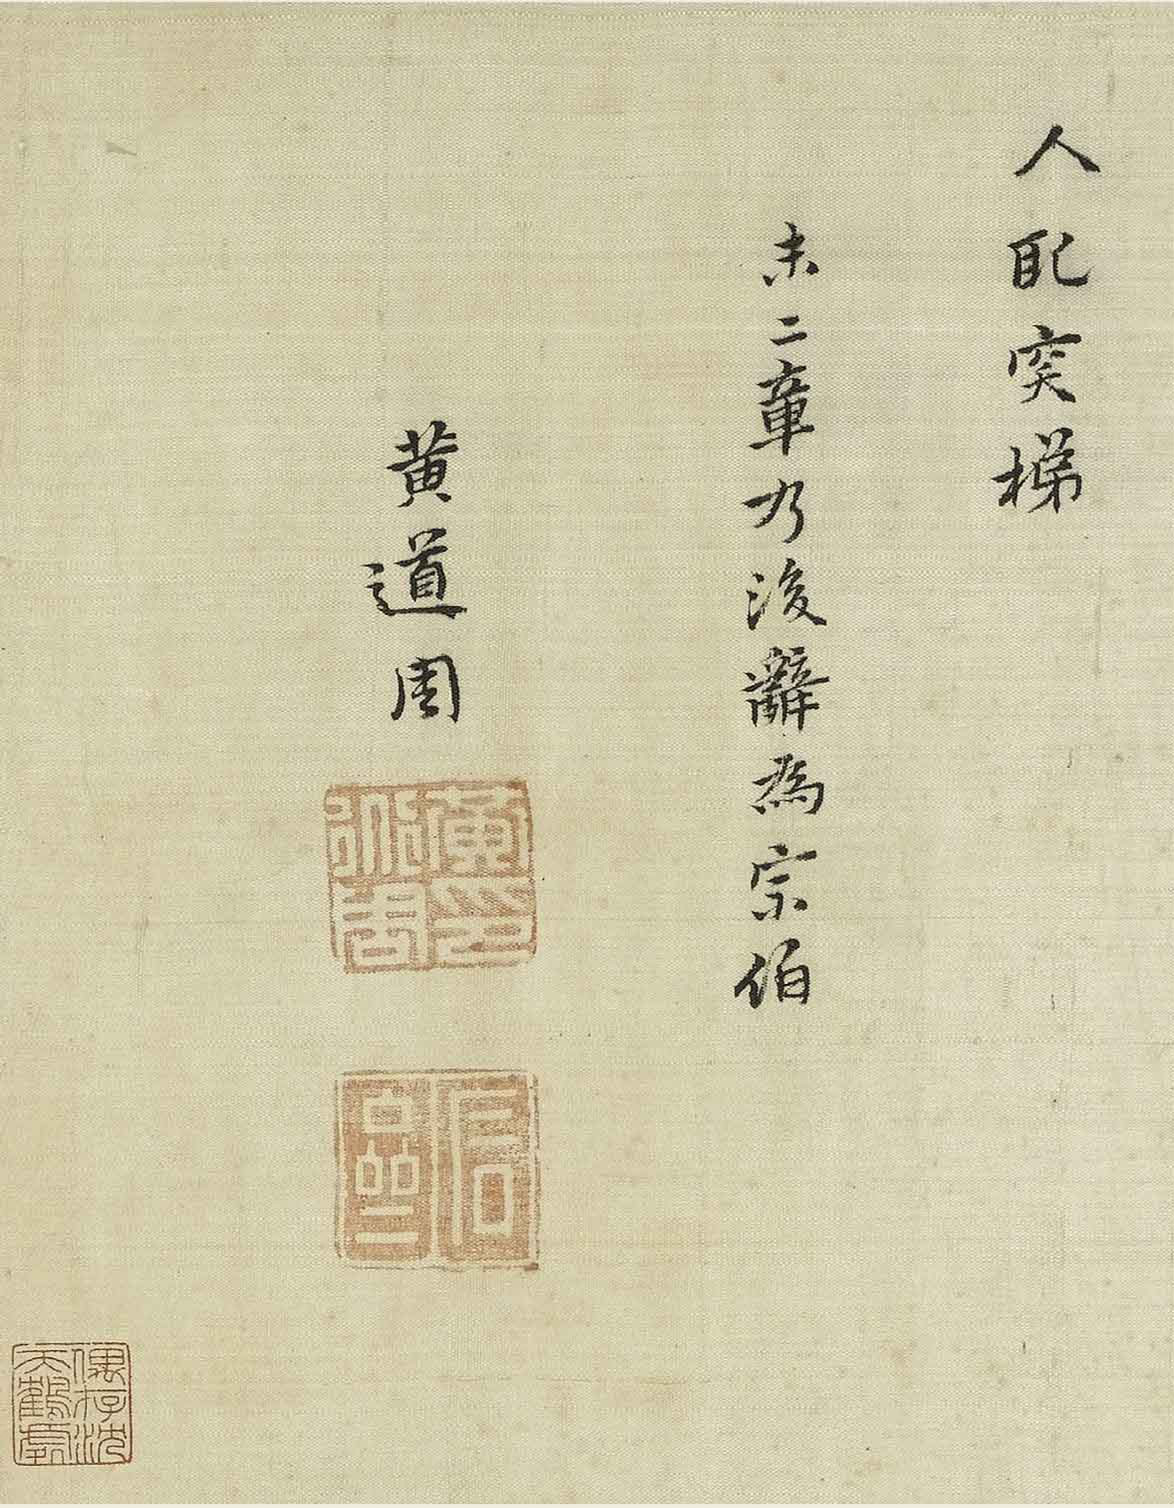 人配突梯
末二章乃後辭為宗伯
黄道周
黄道周印
石齋